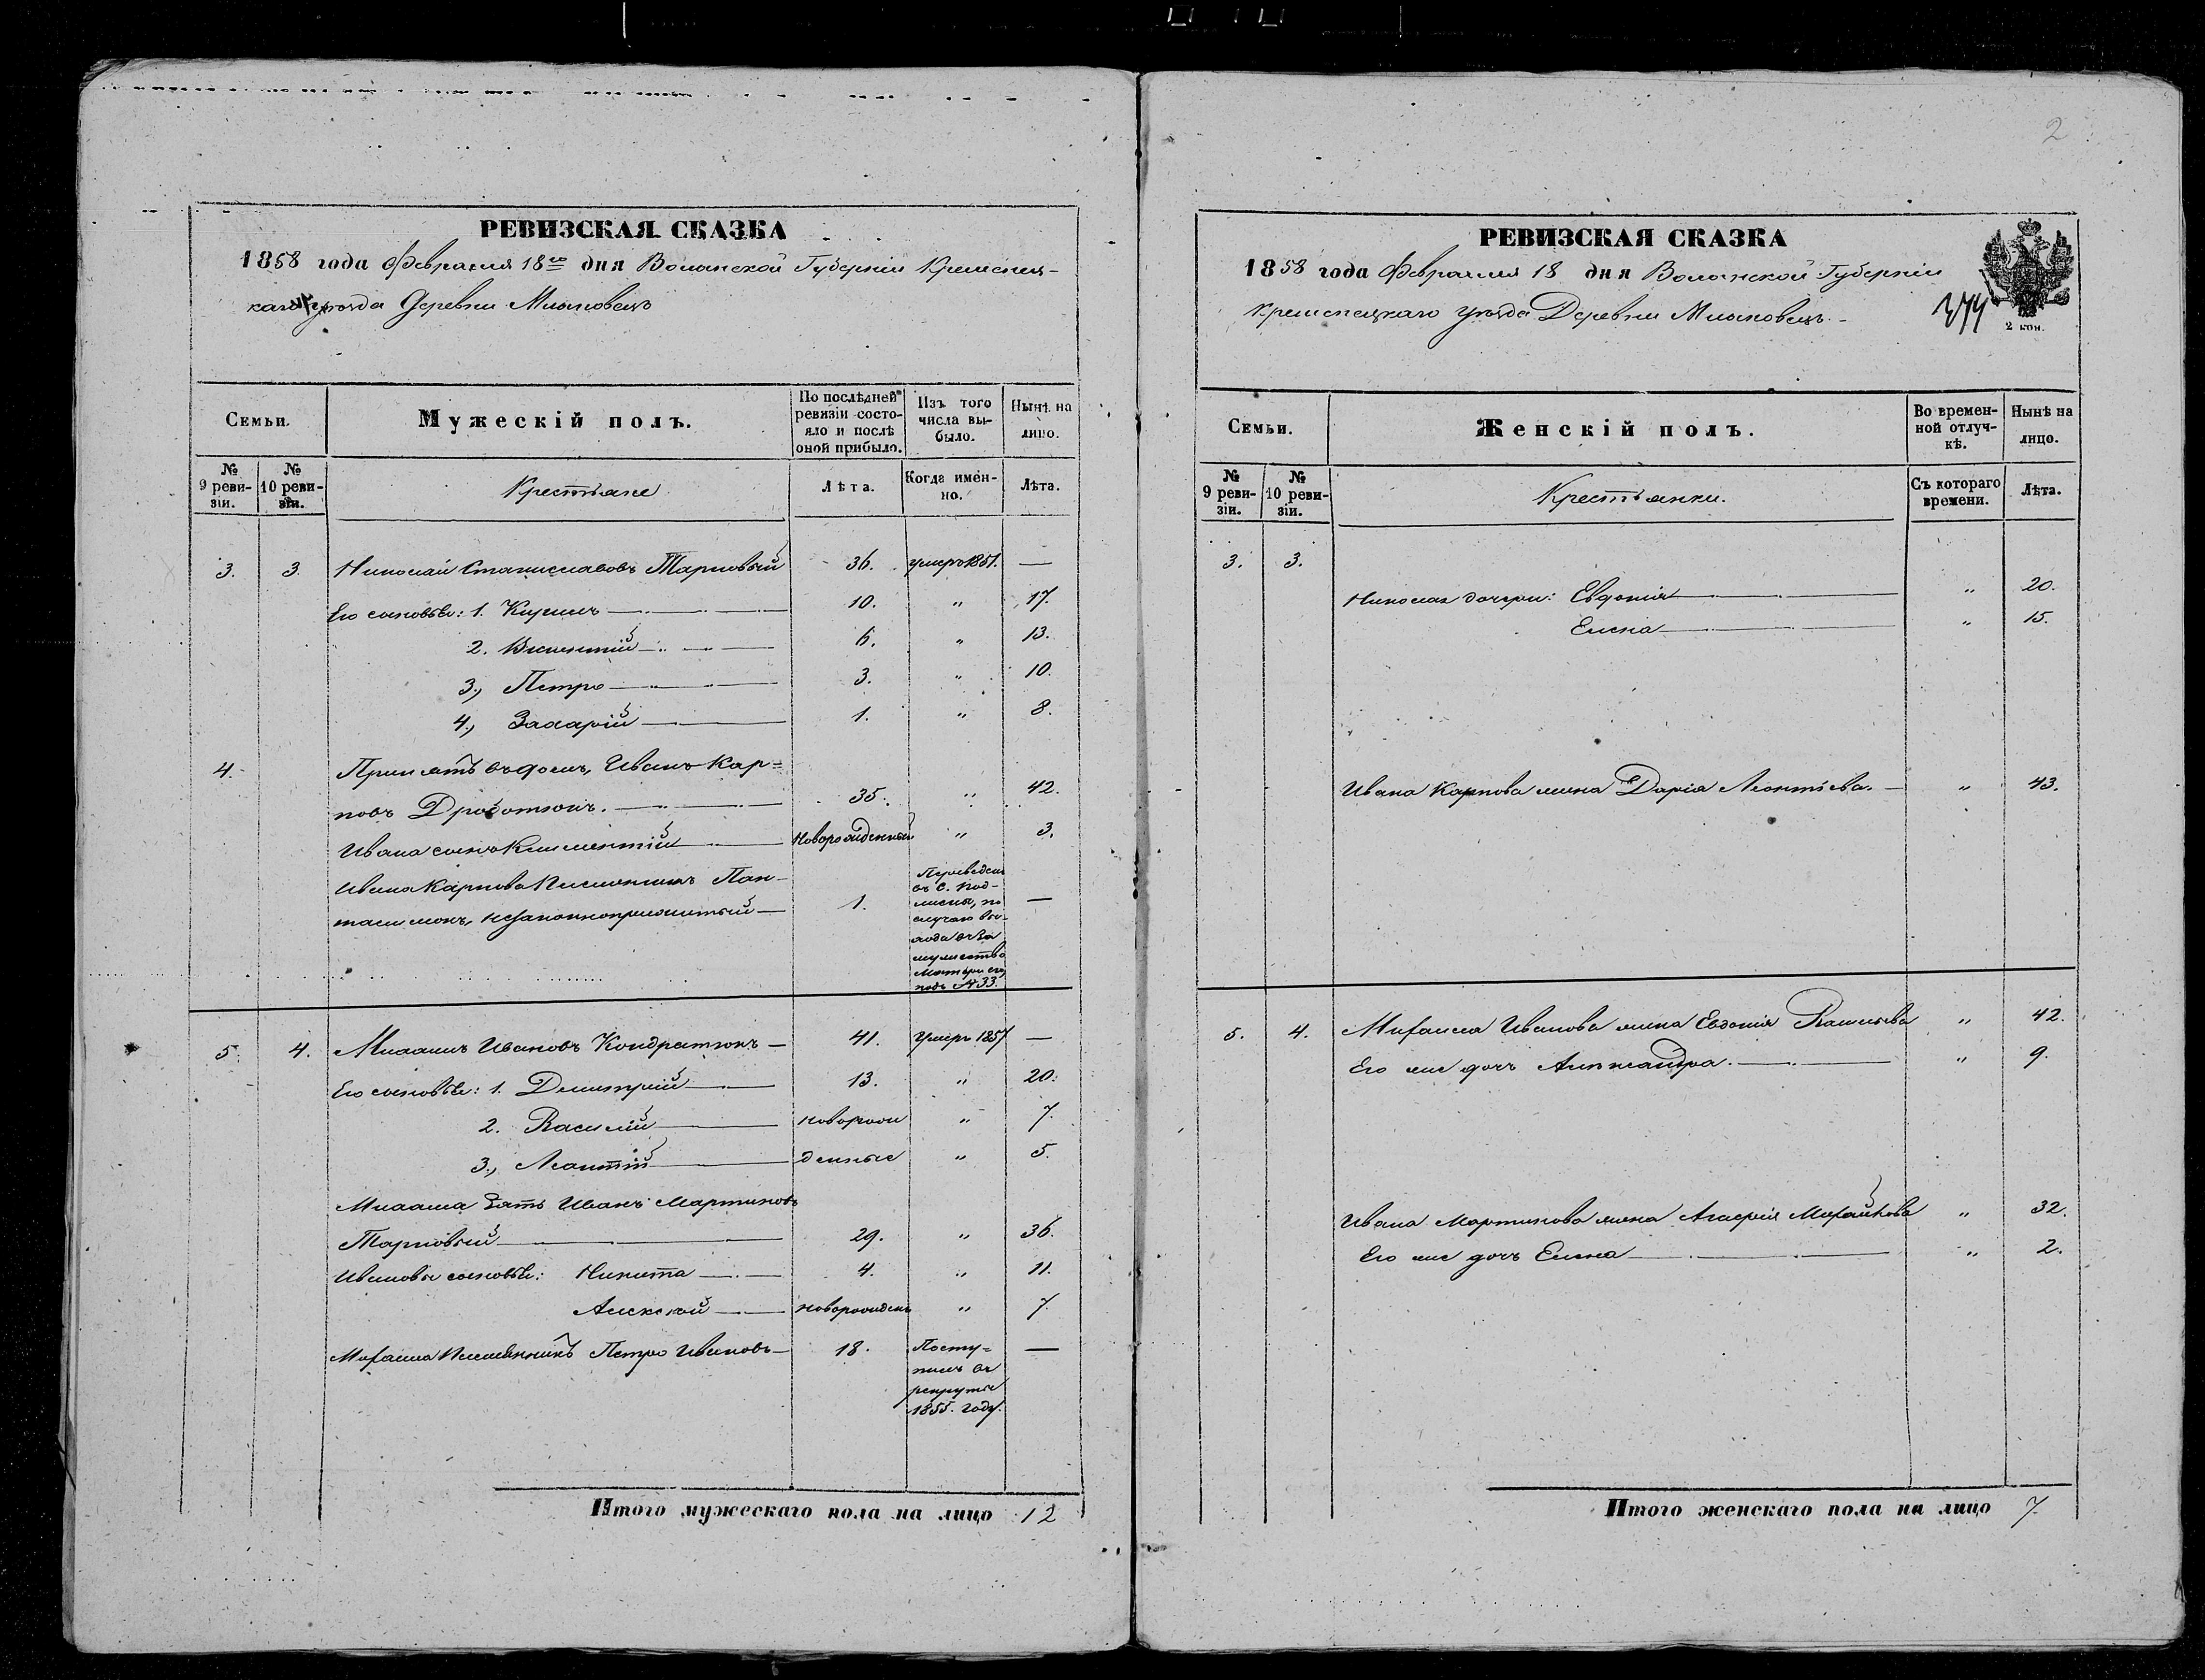 2
РЕВИЗСКАЯ СКАЗКА
1858 года Февраля 18го дня Волынской Губерніи Кременец-
каго уѣзда Деревни Млыновецъ
Семьи.
Мужескій полъ.
По послѣдней ревизіи состо-
яло и послѣ
оной прибыло.
Изъ того
числа вы-
было.
Нынѣ на
лицо.
№
9 реви-
зіи.
№
10 реви-
зіи.
Крестьяне
Лѣта.
Когда имен-
но.
Лѣта.
3. 3. Николай Станиславовъ Тарновый 36. умеръ 1851. —
Его сыновья: 1. Кирилъ 10. „ 17.
2. Викентій 6. „ 13.
3., Петро 3. „ 10.
4., Захарій 1. „ 8.
4. Принятъ въ домъ, Иванъ Кар=
повъ Дроботюкъ. 35. „ 42.
Ивана сынъ Климентій новорожденный „ 3.
Ивана Карпова Племянникъ Пан-
талимонъ, незаконноприжитый 1. —
Переведенъ
въ с. Под-
лисцы, по
случаю вы-
хода въ за
мужество
Матери его
подъ № 33.
5. 4. Михаилъ Ивановъ Кондратюкъ 41. Умеръ 1857 —
Его сыновья: 1. Димитрій 13. „ 20.
2. Василій новорож „ 7.
3., Леонтій денные „ 5.
Михаила Зять Иванъ Мартиновъ
Тарновый 29. „ 36.
Ивановы сыновья: Никита 4. „ 11.
Алексѣй новорожденъ „ 7.
Михаила Племянникъ Петро Ивановъ 18. Посту= —
пилъ въ
рекруты
1855. году.
Итого мужескаго пола на лицо 12
РЕВИЗСКАЯ СКАЗКА
1858 года Февраля 18 дня Волынской Губерніи
Кременецкаго уѣзда Деревни Млыновецъ.
2 коп.
Семьи.
Женскій полъ.
Во времен-
ной отлуч-
кѣ.
Нынѣ на
лицо.
№
9 реви-
зіи.
№
10 реви-
зіи.
Крестьянки.
Съ котораго
времени.
Лѣта.
3. 3.
Николая дочери: Евдокія „ 20.
Елена „ 15.
Ивана Карпова жена Дарія Леонтьева. „ 43.
5. 4. Михаила Иванова жена Евдокія Васильева „ 42.
Его же дочь Александра. „ 9.
Ивана Мартинова жена Агафія Михайлова „ 32.
Его же дочь Елена „ 2.
Итого женскаго пола на лицо 7.